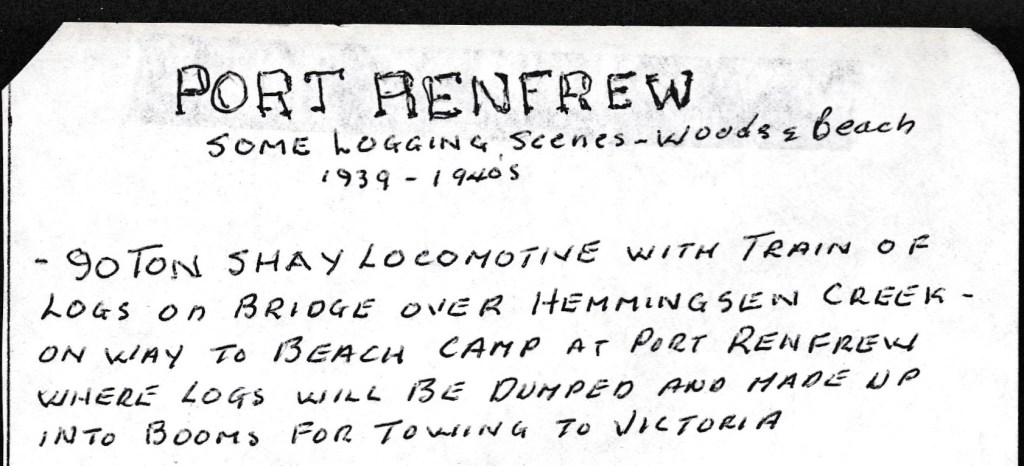 PORT RENFREW
SOME LOGGING Scenes - Woods & Beach
1939 - 1940s
- 90 TON SHAY LOCOMOTIVE WITH TRAIN OF
LOGS On BRIDGE OVER HEMMINGSEN CREEK -
ON WAY TO BEACH CAMP AT PORT RENFREW
WHERE LOGS WILL BE DUMPED AND MADE UP
INTO BOOMS FOR TOWING TO VICTORIA